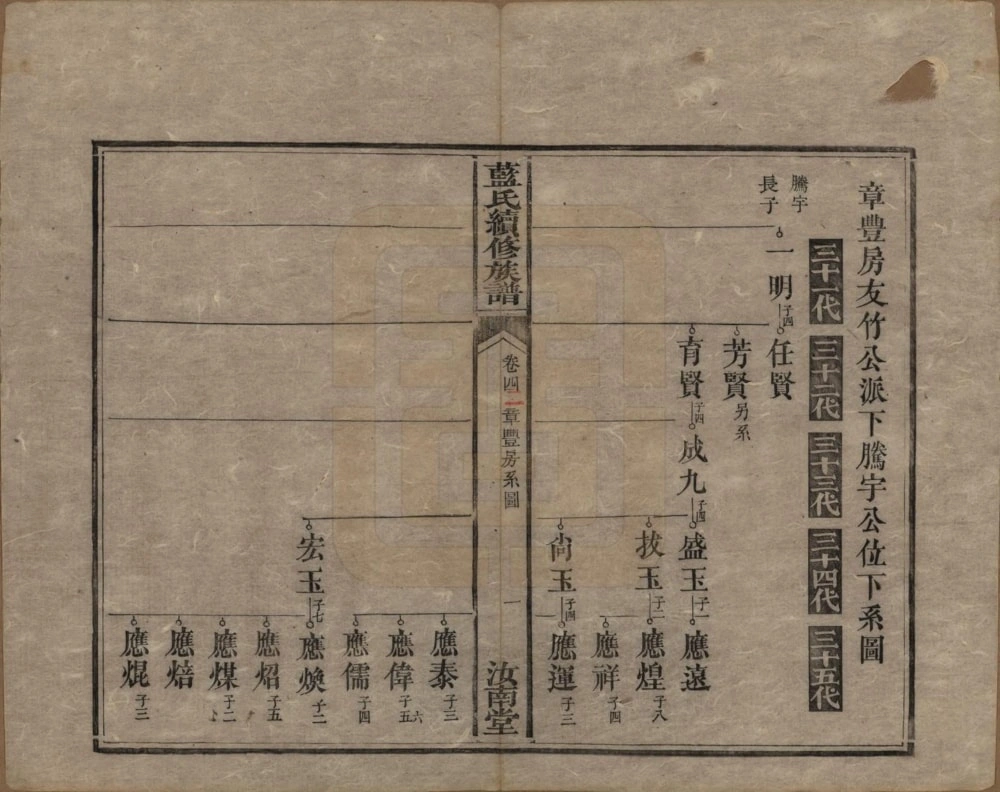 章豐房友竹公派下騰宇公位下系圖
三十一代
三十二代
三十三代
三十四代
三十五代
騰宇
長子
一明 子四
任賢
芳賢 另系
育賢 子四
成九 子四
盛玉 子一
應遠
拔玉 子二
應煌 子八
應祥 子四
尚玉 子四
應運 子三
藍氏續修族譜
卷四
章豐房系圖
一
汝南堂
應泰 子三
應偉 子五 六
應儒 子四
宏玉 子七
應煥 子二
應炤 子五
應煤 子二
應焙
應焜 子三